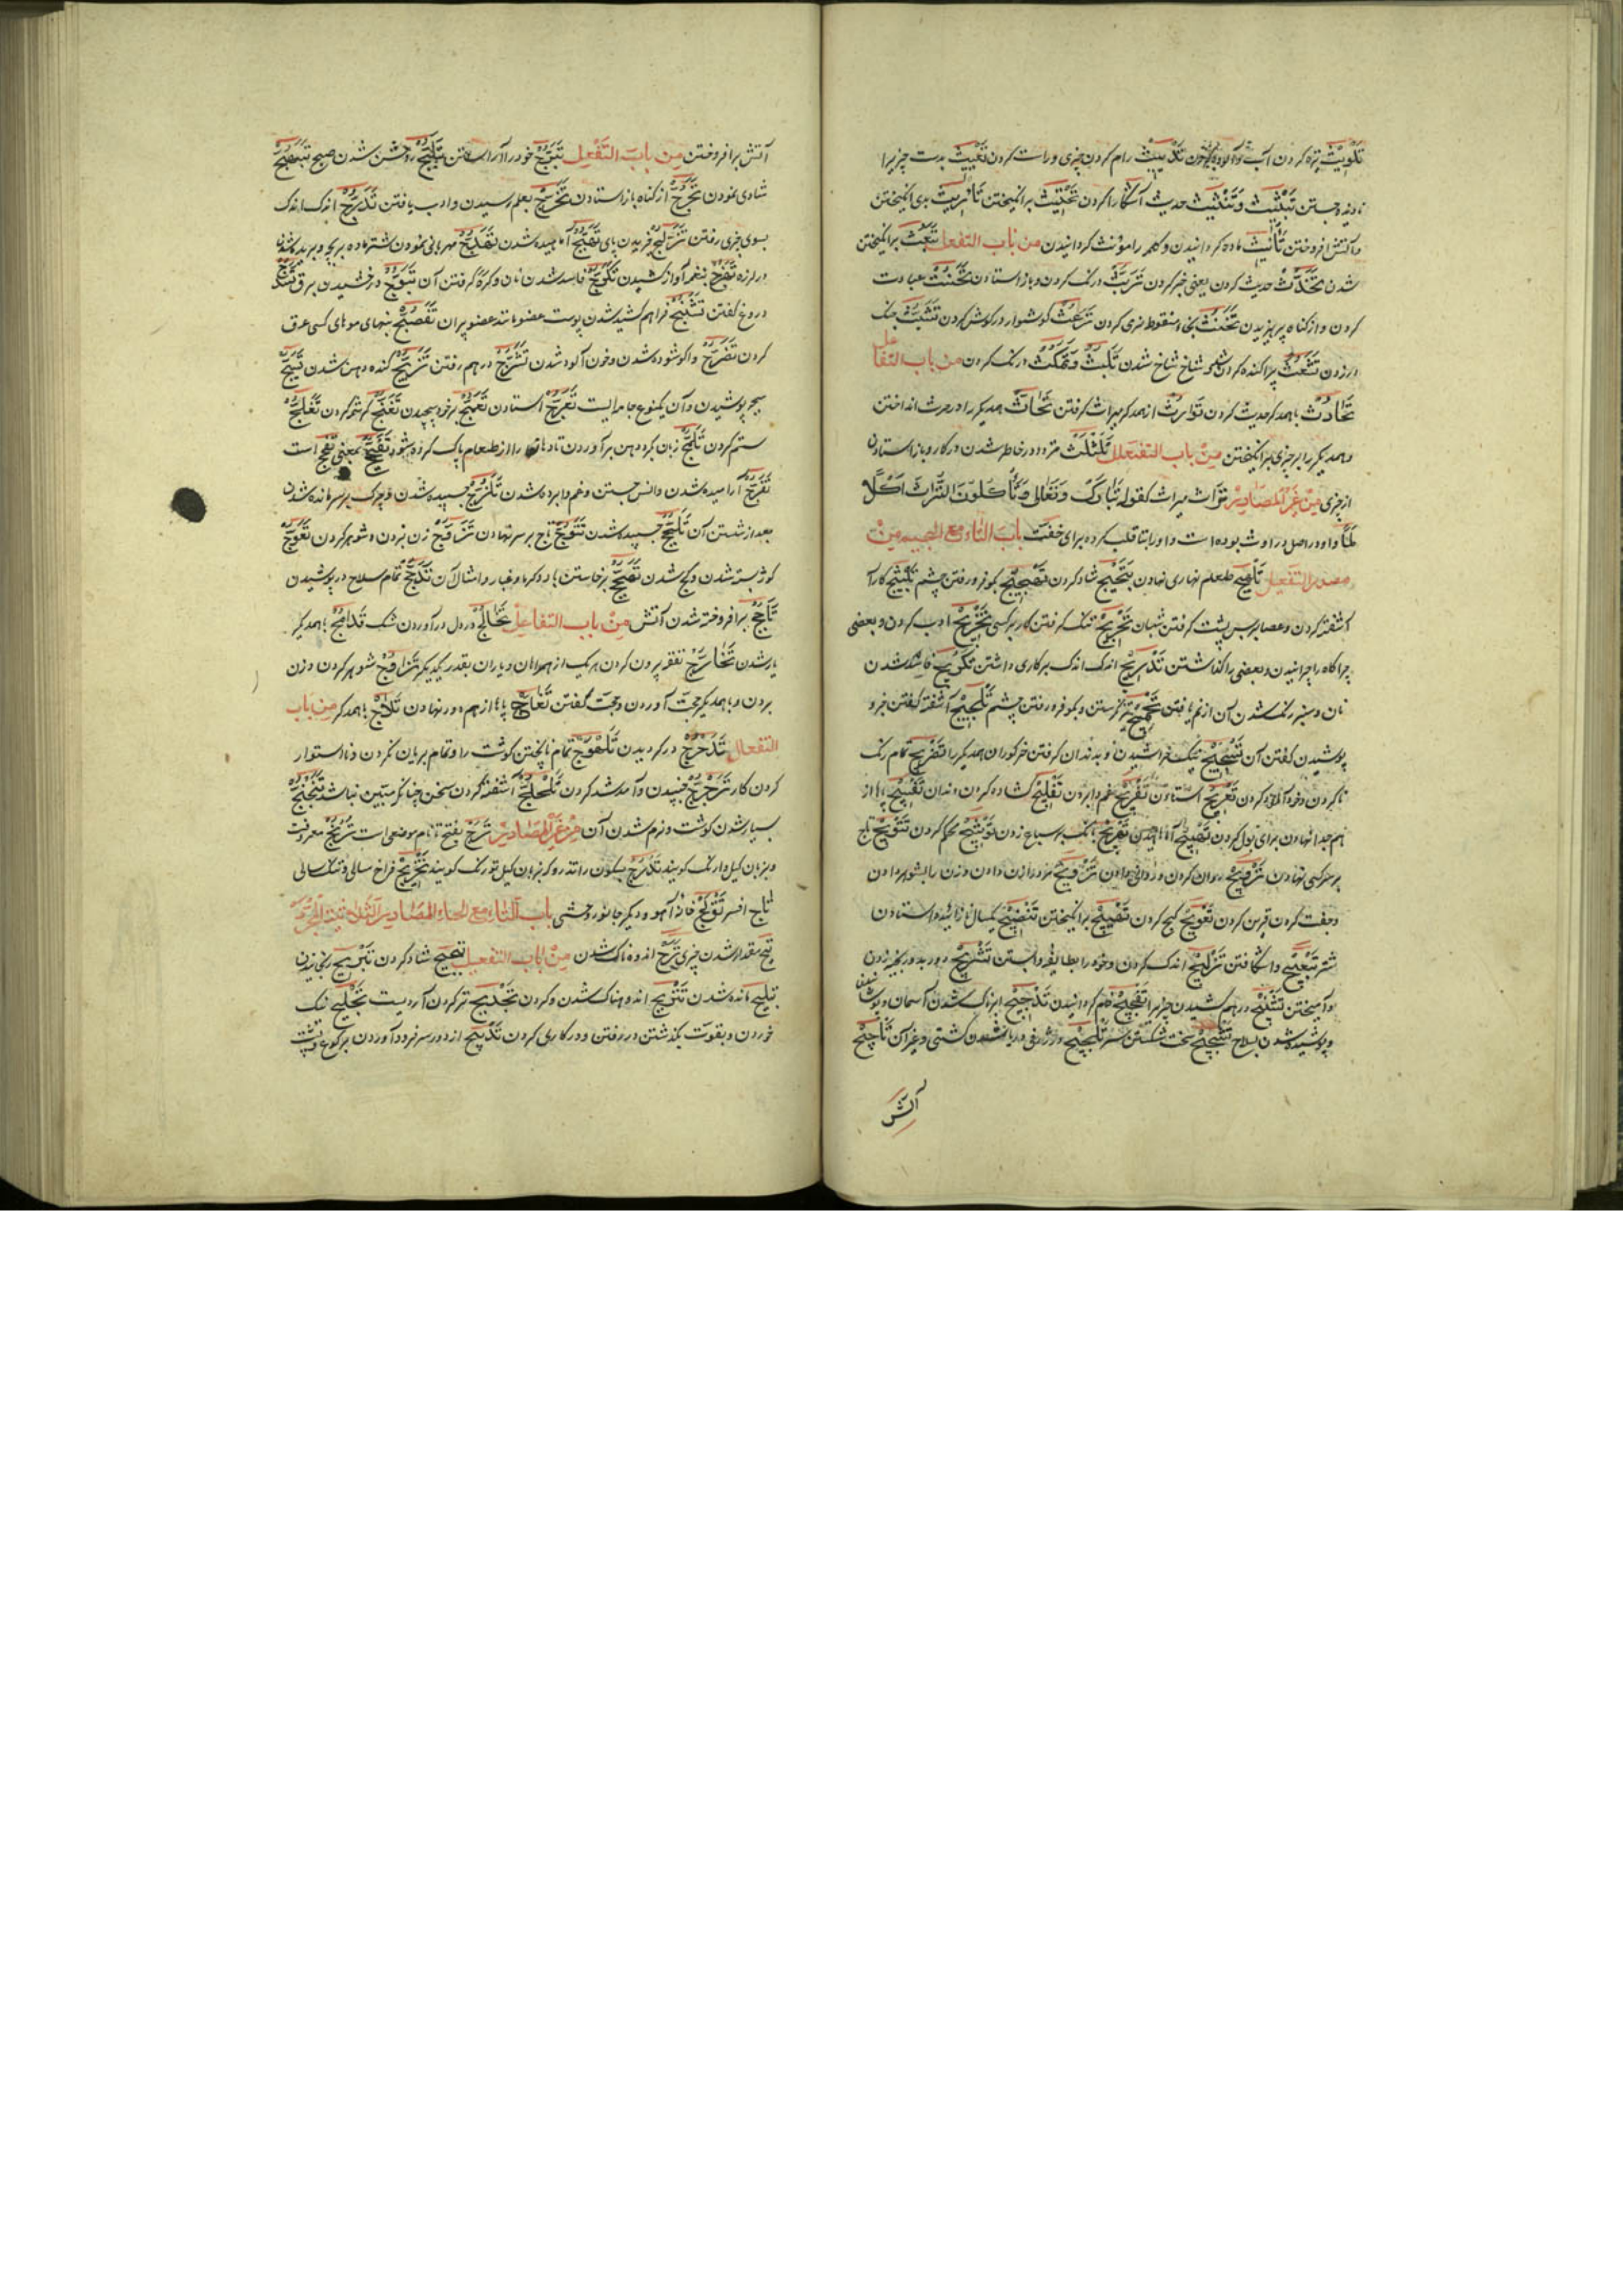 تَلْوِیْث تیره کردن آب و آلوده کردن تَدْیِیْث رام کردن چیزی و راست کردن تَعْیِیْث بدست چیزیرا
نادیده جستن تَبْثِیْث وَتَنْثِیْث حدیث آشکارا کردن برانگیختن تَاْرِیْث بدی انگیختن
و آتش افروختن تَأْنِیْث ماده گردانیدن و کلمه را مؤنث گردانیدن من باب التفعل تَبَعُّث برانگیختن
شدن تَحَدُّث حدیث کردن یعنی خبر کردن تَرَبُّث درنگ کردن و باز استادن تَحَنُّث عبادت
کردن و از گناه پرهیزیدن تَخَنُّث نرمی کردن تَرَعُّث گوشوار در گوش کردن تَشَبُّث چنگ
در زدن تَشَعُّث پراکنده کردن شاخ شاخ شدن تَلَبُّث وَتَمَکُّث درنگ کردن من باب التفاعل
تَحَادُث باهمدگر حدیث کردن تَوَارُث از همدگر میراث گرفتن تَحَاثّ همدیگر را در حرث انداختن
و همدیگر را بر چیزی برانگیختن مِنْ باب التفعلل تَلَثْلُث متردد در خاطر شدن در کار و باز استادن
از چیزی مِنْ غَیْرِ المصَادِر تُرَاث میراث کقوله تَبَارَکَ وَتَعَالی وَتَأْکُلُوْنَ التُّرَاثَ اَکْلاً
لَمّاً و او در اصل وراث بوده است و او را بتا قلب کرده برای خفت بابُ التاء مع الجیم مِنْ
مصدر التفعیل طعام نهاری نهادن شاد کردن بگو فرو رفتن چشم کار را
آشفته کردن و عصا بر پس پشت گرفتن شبان تَحْرِیْج تنگ گرفتن کار بر کسی تَخْرِیْج ادب کردن و بعضی
چراگاه را چرانیدن و بعضی را گذاشتن تَدْرِیْج اندک اندک بر کاری داشتن تَکْرِیْج فاسد شدن
نان و سبز رنگ شدن آن از نم یافتن تَحْمِیْج تیز نگریستن و بگو فرو رفتن چشم تَلْجِیْج آشفته گفتن خبر و
پوشیدن گفتن آن نیک خراشیدن و بدندان گرفتن خرگوران همدیگر را تَضْرِیْج تمام رنگ
ناکردن و خون آلوده کردن تَعْرِیْج استادن تَفْرِیْج غم وا بردن تَفْلِیْج گشاده کردن دندان پاها از
هم جدا نهادن برای بول کردن بانگ بر سباع زدن تَوْشِیْج محکم کردن تَتْوِیْج تاج
بر سر کسی نهادن تَرْوِیْج روان کردن و روانی دادن تَزْوِیْج مرد را زن دادن و زن را بشوهر دادن
و جفت کردن و قرین کردن تَعْوِیْج کج کردن تَهْیِیْج برانگیختن یکسال نازائیده استادن
شتر تَبْعِیْج واشکافتن تَزْلِیْج اندک کردن و خود را بطایفه وابستن تَشْرِیْج دور بدور بخیه زدن
و آمیختن تَشْنِیْج درهم کشیدن چیزیرا خام گردانیدن تَدْجِیْج ابرناک شدن آسمان و پوشیدن
و پوشیده شدن بسلاح تَشْجِیْج سخت شکستن سر تَلْجِیْج در ژرف دریا شدن کشتی و غیر آن تَأْجِیْج
آتش
آتش برافروختن مِن بابَ التفعّل تَبَرُّج خود را آراستن تَبَلُّج روشن شدن صبح
شادی نمودن تَحَرُّج از گناه باز استادن تَخَرُّج بعلم رسیدن و ادب یافتن تَدَرُّج اندک اندک
بسوی چیزی رفتن لغزیدن پای تَهَبُّج آماسیده شدن تَهَدُّج مهربانی نمودن شتر ماده بر بچه و بریده شدن
در لرزه تَهَزُّج بنغم آواز کشیدن تَکَرُّج فاسد شدن نان و کره گرفتن آن تَبَوُّج درخشیدن برق
دروغ گفتن تَشَنُّج فراهم کشیده شدن پوست عضو مانند عضو پیران بنهای موهای کسی عرق
کردن تَضَرُّج واگشوده شدن و خون آلود شدن تَشَرُّج درهم رفتن گنده دهن شدن
پوشیدن و آن یکنوع جامه ایست تَعَرُّج استادن تَعَمُّج بر خود پیچیدن تَغَنُّج کرشمه کردن
ستم کردن تَلَمُّج زبان گرد دهن برآوردن تا دهان را از طعام پاک کرده شود بمعنی است
تَفَرُّج آرامیده شدن و انس جستن و غم وا برده شدن تَلَزُّج چسپیده شدن و چرک بر سر مانده شدن
بعد از شستن آن چسپیده شدن تَتَوُّج تاج بر سر نهادن تَزَوُّج زن بردن و شوهر کردن تَعَوُّج
کوژ بسته شدن و کج شدن تَهَیُّج برخاستن باد و گرما و غبار و امثال آن تَدَجُّج تمام سلاح در پوشیدن
تَأَجُّج برافروخته شدن آتش مِنْ باب التفاعل تَخَالُج در دل درآوردن شک تَدَامُج باهمدگر
یار شدن تَخَارُج نفقه بیرون کردن هر یک از همراهان و یاران بقدر یکدیگر تَزَاوُج شوهر کردن و زن
بردن و با همدیگر حجت آوردن و حجت گفتن پاها از هم دور نهادن باهمدگر مِن باب
التفعلل تَدَحْرُج در گردیدن تَلَهْوُج تمام ناپختن گوشت را و تمام بریان نکردن و نااستوار
کردن کار تَرَجْرُج جنبیدن و آمد شد کردن تَلَجْلُج آشفته کردن سخن چنانکه متبین نباشد
بسیار شدن گوشت و نرم شدن آن مِنْ غَیْرِ المَصَادِر تَرْج بفتح تا نام موضعی است تُرُنْج معرفت
و بزبان گیل وارنگ گویند بسکون را تذرو که بزبان گیل تورنگ گویند تَخْرِیْج فراخ سالی و تنگ سالی
تاج افسر تَوْلَج خانه آهو و دیگر جانور وحشی بابُ التاء مع الحاء المصادر الثلاثیة المجرد
مقدار شدن چیزی تَرَح اندوهناک شدن مِنْ باب التفعیل شاد کردن تَبْرِیْح رنجانیدن
تَبْلِیْح مانده شدن تَتْرِیْح اندوهناک شدن و کردن تَجْدِیْح تر کردن آرد پست تَجْلِیْح نیک
خوردن و بقوت بگذشتن در رفتن و در کاری کردن تَدْبِیْح از دور سر فرود آوردن برکوع و پشت